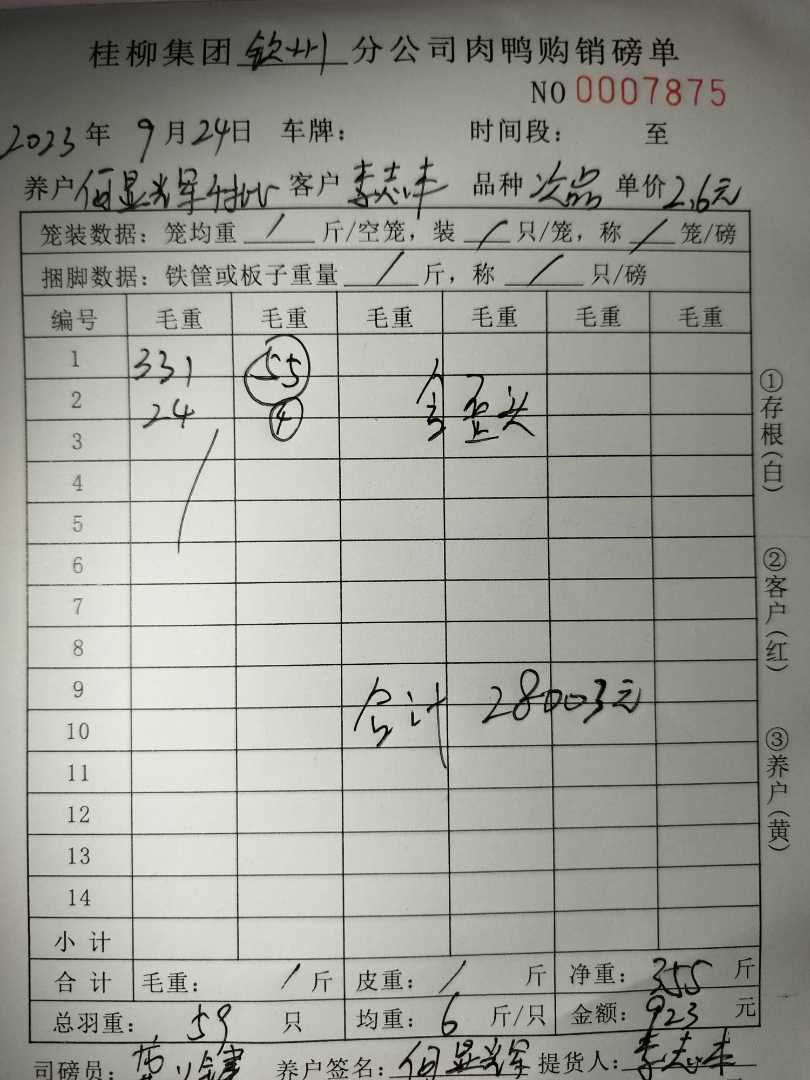 桂柳集团钦州分公司肉鸭购销磅单
NO 0007875
2023年 9月24日 车牌： 时间段： 至
养户何显光军 客户李志丰 品种次品 单价2.6元
笼装数据：笼均重 / 斤/空笼，装 / 只/笼，称 / 笼/磅
捆脚数据：铁筐或板子重量 / 斤，称 / 只/磅
编号 毛重 毛重 毛重 毛重 毛重 毛重
1 331 55
2 24 4 含歪头
3
4
5
6
7
8
9 合计 28003元
10
11
12
13
14
小计
合计 毛重： / 斤 皮重： / 斤 净重：355斤
总羽重：59只 均重：6斤/只 金额：923元
司磅员： 养户签名：何显光军 提货人：李志丰
①存根（白）
②客户（红）
③养户（黄）